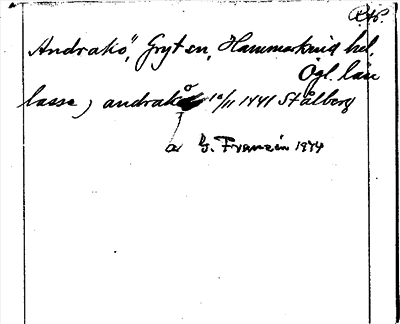 Andrakö, Gryt sn, Hammarkind hd,
Ögl. län
lasse) andrak 10/11 1441 Stålberg
a G. Franzén 1944